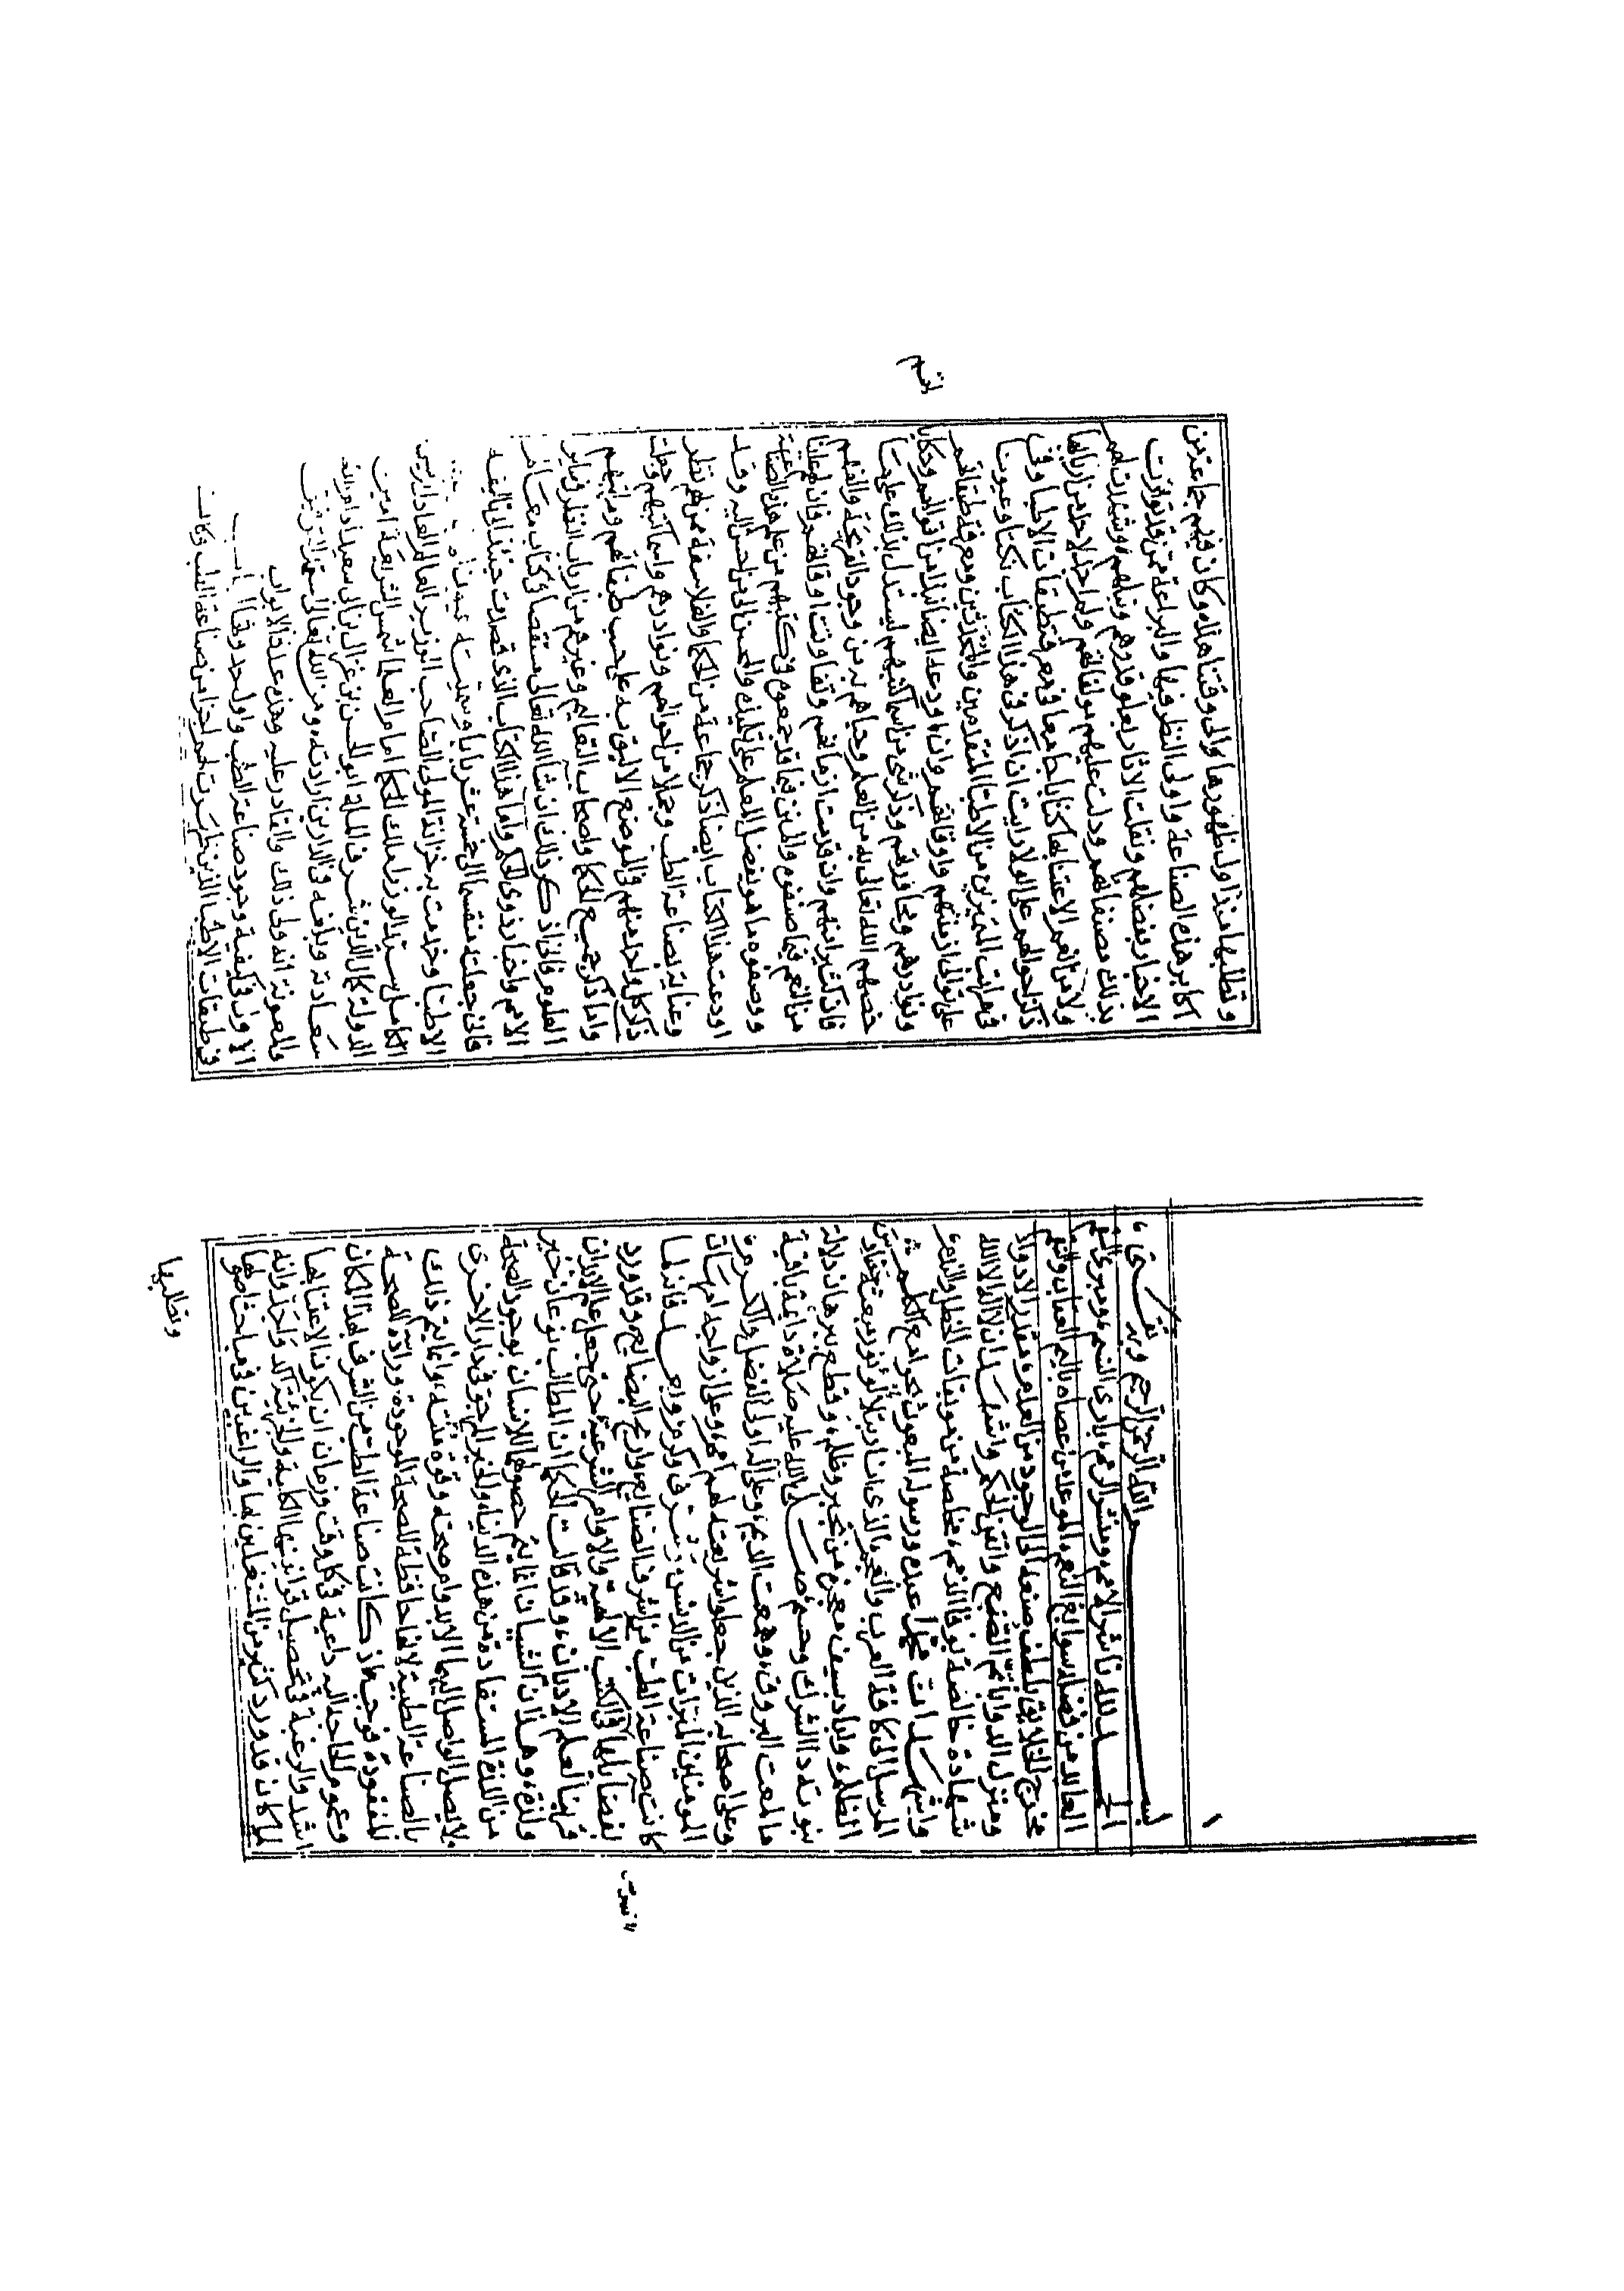 بسم الله الرحمن الرحيم وبه ثقتى
الحمد لله ناشر الامم ومنشر الرمم بارى النسم ومبرى السقم
العائد من فضله بسوابغ النعم الموعد من عصاه باليم العقاب والنقم
مخرج الخلايق بلطف صنعه الى الوجود من العدم ومقدر الادوا
ومنزل الدوا باتم الصنع واتقن الحكم واشهد ان لا اله الا الله
شهادة خالصة بوفا الذمم مخلصة من موبقات الخطل والندم
واشهد ان محمدا عبده ورسوله المبعوث بجوامع الكلم
المرسل الى كافة العرب والعجم الذى انار بتلالؤ نور بعثته حنادس
الظلم واباد بسيف معجزه من تجبر وظلم وقطع ببرهان دلالة
نبوته دا الشرك وحسم صلى الله عليه صلاة دائمة باقية
ما لمعت البروق وهمعت الديم وعلى اله اولى الفضل والكرم
وعلى اصحابه الذين جعلوا شريعته لهم امم وعلى ازواجه امهات
المومنين المبرات من الدنس وشرف وكرم وبعد فانه لما
كانت صناعة الطب من اشرف الصنايع واربح البضايع وقد ورد
تفضيلها فى الكتب الالهية والاوامر الشرعية حتى جعل علم الابدان
قرينا لعلم الاديان وقد قالت الحكما ان المطالب نوعان خير
ولذة وهذان الشيان انما يتم حصولهما للانسان بوجود الصحة
من اللذة المستفادة من هذه الدنيا والخير المرجو فى دار الاخرى
لا يصل الواصل اليهما الا بدوام صحته وقوة بنيته وانما يتم ذلك
بالصناعة الطبية لانها حافظة للصحة الموجودة ورادة للصحة
المفقودة فوجب اذ كانت صناعة الطب من الشرف بهذا المكان
وعموم الحاجة اليه داعية فى كل وقت وزمان ان يكون الاعتنا بها
اشد والرغبة فى تحصيل قوانينها الكلية والجزئية آكد واجد وانه
لما كان قد ورد كثير من المشتغلين بها والراغبين فى مباحث اصولها
وتطلبها
وتطلبها منذ اول ظهورها والى وقتنا هذا وكان فيهم جماعة من
اكابر هذه الصناعة واولى النظر فيها والبراعة ممن قد تواترت
الاخبار بفضلهم ونقلت الاثار بعلو قدرهم ونبلهم وشهدت لهم
بذلك مصنفاتهم ودلت عليهم مولفاتهم ولم اجد لاحد من اربابها
ولا من انعم الاعتنا بها كتابا جامعا فى معرفة طبقات الاطبا وفى
ذكر احوالهم على الولا رايت ان اذكر فى هذا الكتاب نكتا وعيونا
فى مراتب المميزين من الاطبا المتقدمين والمحدثين ومعرفة طبقاتهم
على توالى ازمنتهم واوقاتهم وان اودعه ايضا نبذا من اقوالهم وحكاياتهم
ونوادرهم ومحاوراتهم وذكر شى من اسما كتبهم ليستدل بذلك على ما
خصهم الله تعالى به من العلم وحباهم به من وجود القريحة والفهم
فان كثيرا منهم وان قدمت ازمانهم وتفاوتت اوقاتهم فان لهم علينا
من النعم فيما صنفوه والمنن فيما قد جمعوه فى كتبهم من علم هذه الصناعة
ووصفوه ما هو تفضل المعلم على تلميذه والمحسن الى من احسن اليه وقد
اودعت هذا الكتاب ايضا ذكر جماعة من الحكما والفلاسفة ممن لهم نظر
وعناية بصناعة الطب وجملا من احوالهم ونوادرهم واسما كتبهم وجعلت
ذكر كل واحد منهم فى الموضع الاليق به على حسب طبقاتهم ومراتبهم
واما ذكر جميع الحكما واصحاب التعاليم وغيرهم من ارباب النظر فى ساير
العلوم فانى اذكر ذلك ان شا الله تعالى مستقصا فى كتاب معالم
الامم واخبار ذوى الحكم واما هذا الكتاب الذى قصدت حينئذ الى تاليفه
فانى جعلته منقسما الى خمسة عشر بابا وسميته عيون الانبا فى طبقات
الاطبا وخدمت به خزانة المولى الصاحب الوزير العالم العادل الرييس
الكامل سيد الوزرا ملك الحكما امام العلما شمس الشريعة امين
الدولة كمال الدين شرف الملة ابو الحسن بن غزال بن ابى سعيد ادام الله
سعادته وبلغه فى الدارين ارادته ومن الله تعالى استمد التوفيق
والمعونة انه ولى ذلك والقادر عليه وهذه عدد الابواب الباب
الاول فى كيفية وجود صناعة الطب واول حدوثها الباب
فى طبقات الاطبا الذين ظهرت لهم اجزا من صناعة الطب وكانت